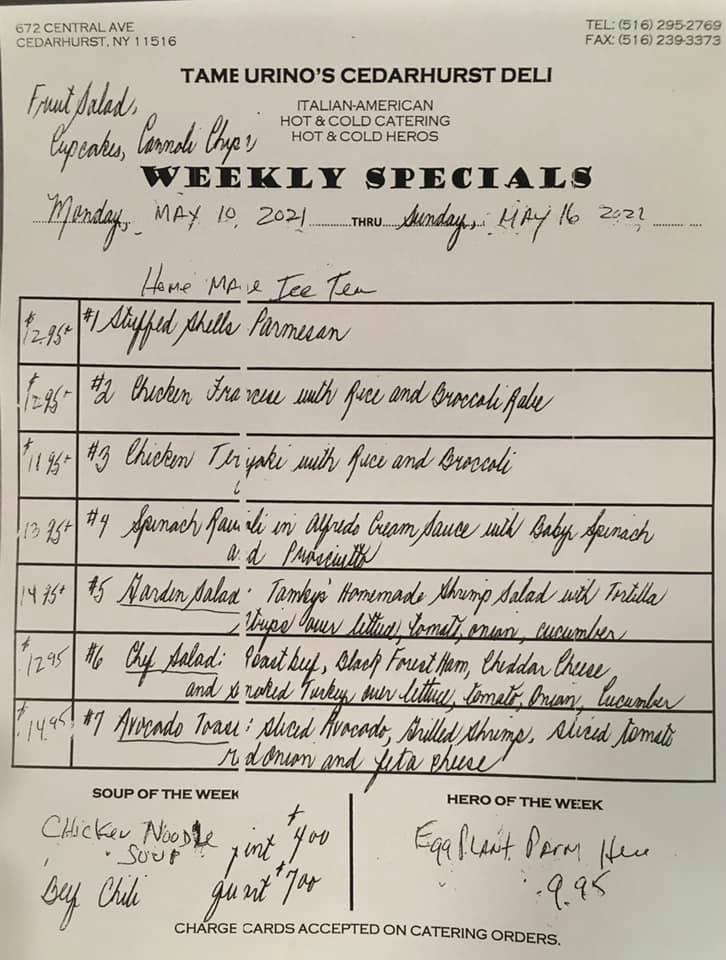 672 CENTRAL AVE
CEDARHURST, NY 11516
TEL: (516) 295-2769
FAX: (516) 239-3373
TAME URINO'S CEDARHURST DELI
ITALIAN-AMERICAN
HOT & COLD CATERING
HOT & COLD HEROS
Fruit Salad,
Cupcakes, Cannoli Chips
WEEKLY SPECIALS
Monday, MAY 10, 2021 THRU Sunday, MAY 16 2021
Home Made Ice Tea
$12.95+ #1 Stuffed Shells Parmesan
$12.95+ #2 Chicken Francese with Rice and Broccoli Rabe
$11.95+ #3 Chicken Teriyaki with Rice and Broccoli
13.95+ #4 Spinach Ravioli in Alfredo Cream Sauce with Baby Spinach
and Prosciutto
14.95+ #5 Garden Salad: Tamky's Homemade Shrimp Salad with Tortilla
Strips over lettuce, tomato, onion, cucumber
$12.95 #6 Chef Salad: Roast Beef, Black Forest Ham, Cheddar Cheese
and smoked Turkey over lettuce, tomato, Onion, Cucumber
$14.95 #7 Avocado Toast: Sliced Avocado, Grilled Shrimp, sliced tomato
red onion and feta cheese
SOUP OF THE WEEK
Chicken Noodle
Soup pint $4.00
Beef Chili quart $7.00
HERO OF THE WEEK
EggPlant Parm Hero
9.95
CHARGE CARDS ACCEPTED ON CATERING ORDERS.